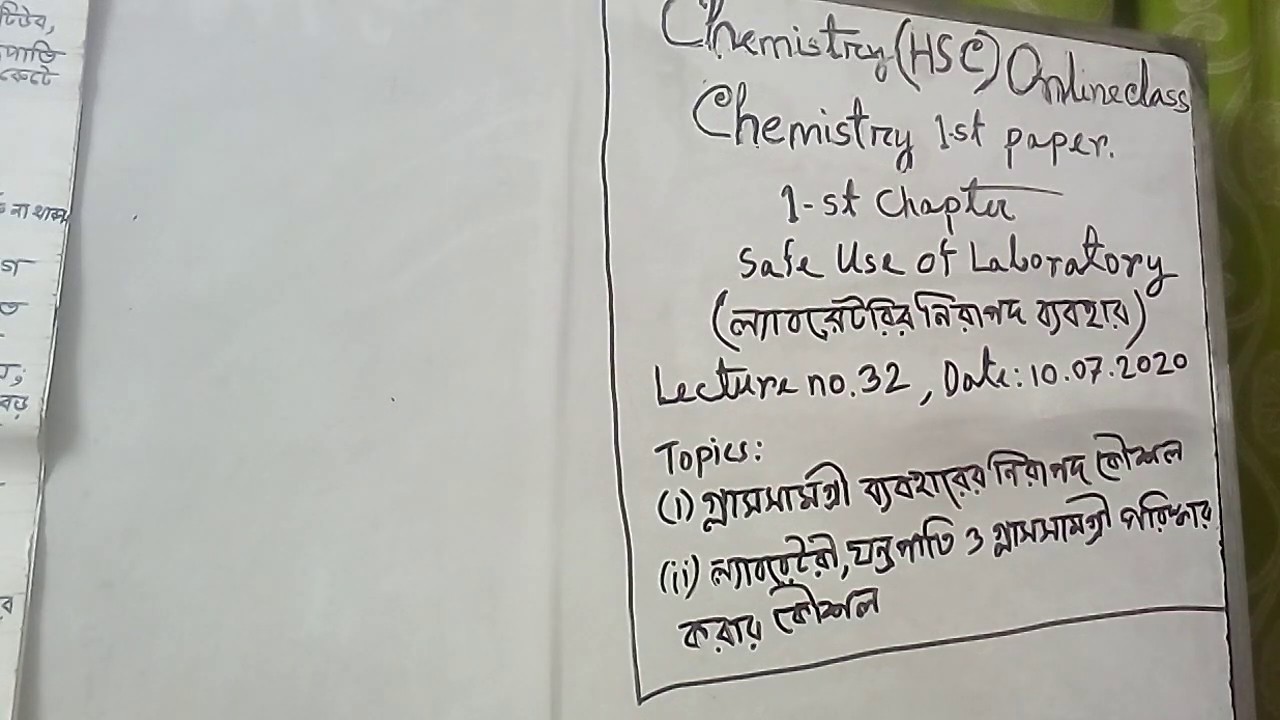 টিউব,
পাতি
না থাকে
বড়
Chemistry (HSC) Online class
Chemistry 1st paper.
1-st Chapter
Safe Use of Laboratory
(ল্যাবরেটরির নিরাপদ ব্যবহার)
Lecture no. 32, Date: 10.07.2020
Topics:
(i) গ্লাসসামগ্রী ব্যবহারের নিরাপদ কৌশল
(ii) ল্যাবরেটরী, যন্ত্রপাতি ও গ্লাসসামগ্রী পরিষ্কার
করার কৌশল